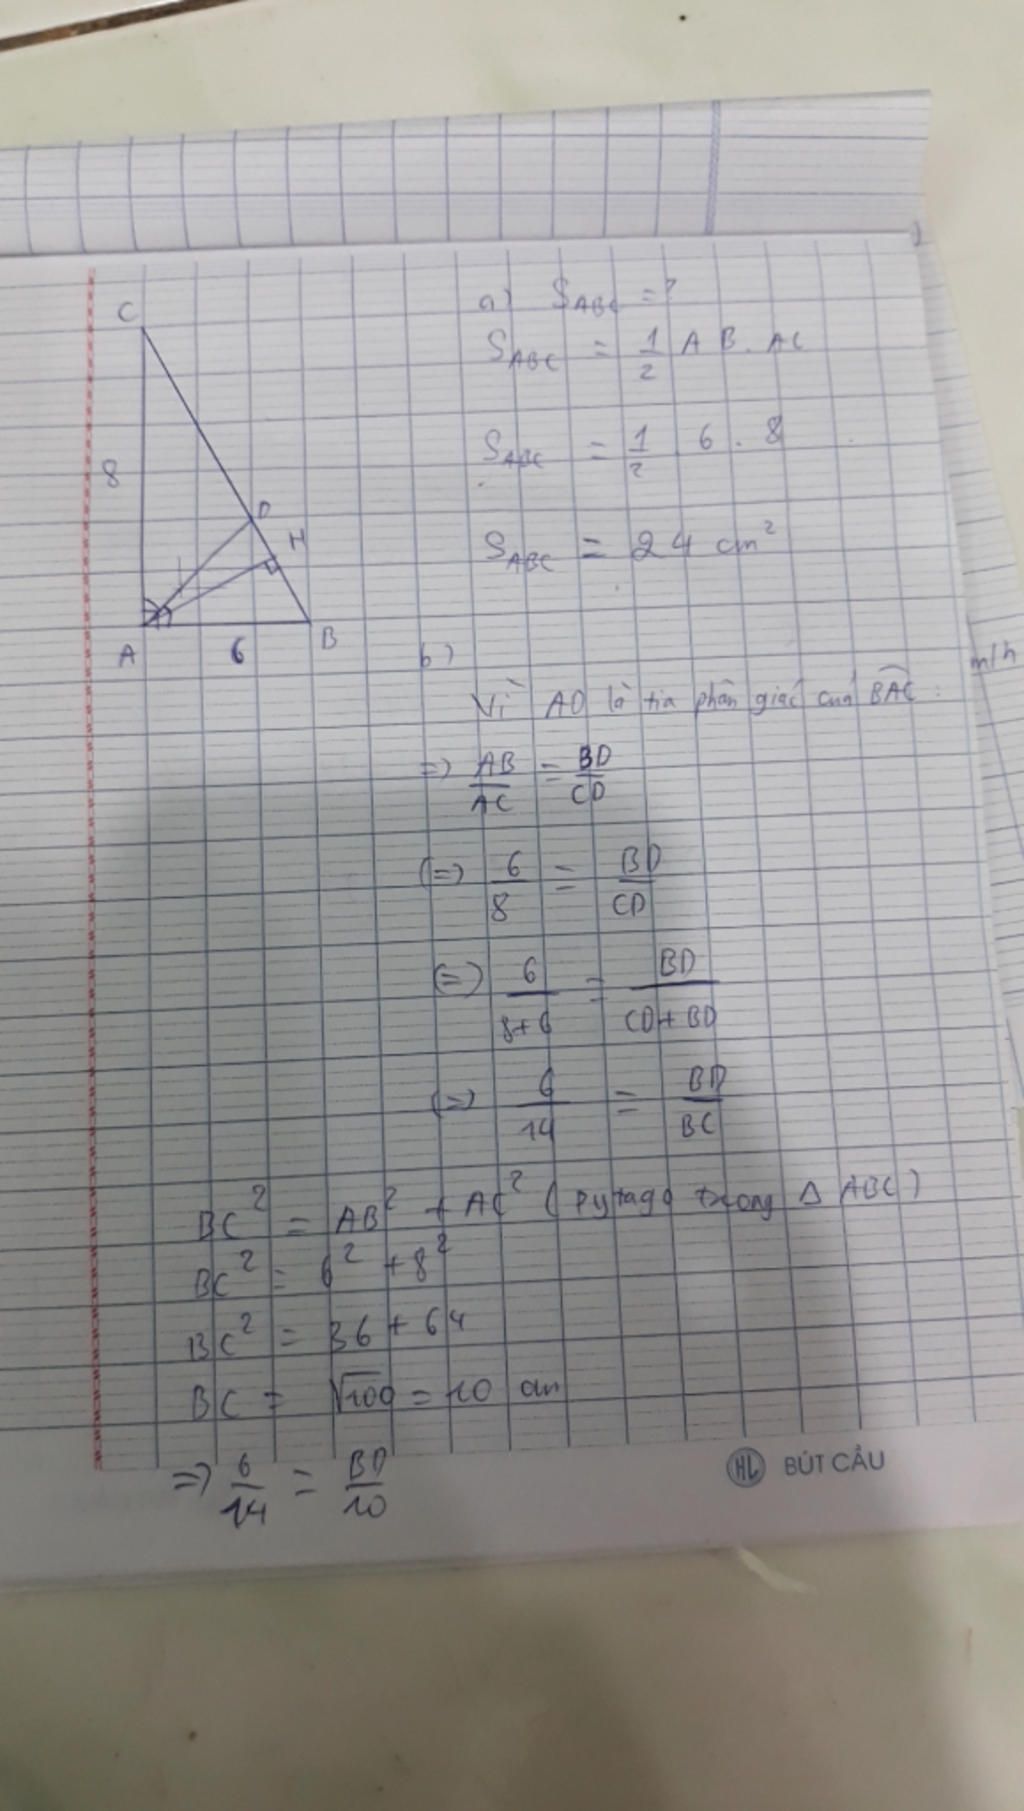 C
8
D
H
A
6
B
a) S_ABC = ?
S_ABC = 1/2 AB. AC
S_ABC = 1/2 6 . 8
S_ABC = 24 cm²
b)
m/h
Vì AD là tia phân giác của BAC :
=> AB/AC = BD/CD
(=) 6/8 = BD/CD
(=) 6/8+6 = BD/CD+BD
(=) 6/14 = BD/BC
BC² = AB² + AC² (Pytago trong Δ ABC)
BC² = 6² + 8²
BC² = 36 + 64
BC = √100 = 10 cm
=> 6/14 = BD/10
HL BÚT CẦU